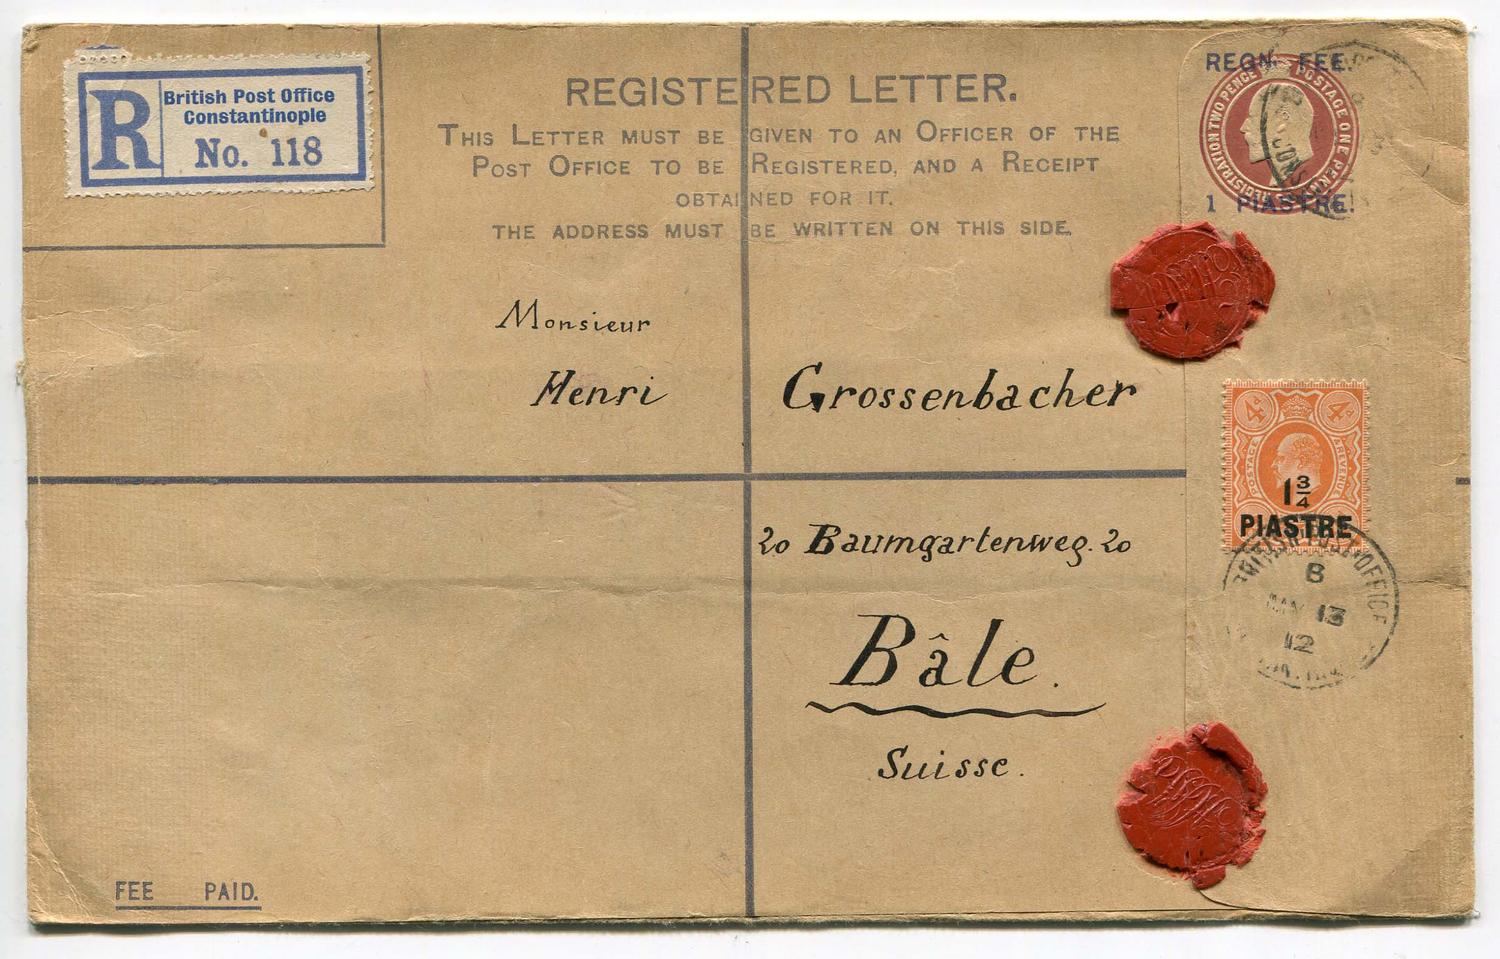 R
British Post Office
Constantinople
No. 118
REGISTERED LETTER.
THIS LETTER MUST BE GIVEN TO AN OFFICER OF THE
POST OFFICE TO BE REGISTERED, AND A RECEIPT
OBTAINED FOR IT.
THE ADDRESS MUST BE WRITTEN ON THIS SIDE.
REGN. FEE.
REGISTRATION TWO PENCE POSTAGE ONE PENNY
1 PIASTRE.
Monsieur
Henri Grossenbacher
20 Baumgartenweg. 20
Bâle.
Suisse.
4d 4d
POSTAGE REVENUE
1 3/4
PIASTRE
BRITISH POST OFFICE
B
MAY 13
12
FEE PAID.